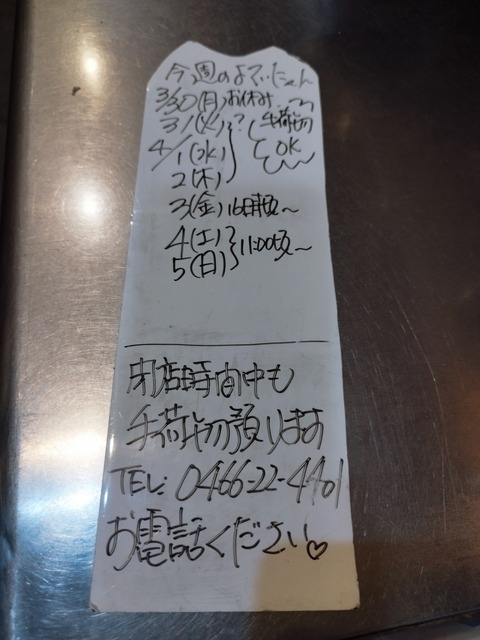 今週のよぞ、たゃん
3/30(月)お休み
31(火)? 手荷物
4/1(水) OK
2(木)
3(金)16時頃〜
4(土)
5(日) 11:00頃〜
閉店時間中も
手荷物預ります
TEL: 0466-22-4401
お電話ください♡